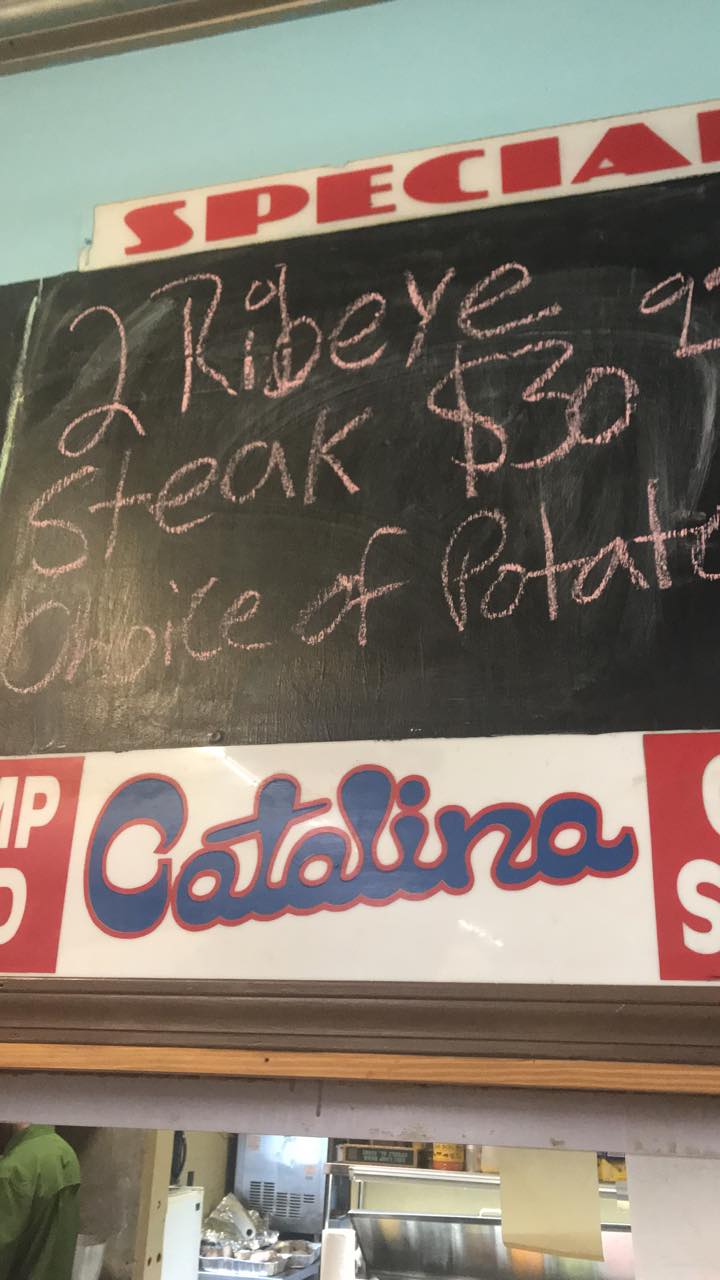 SPECIAL
2 Ribeye
Steak $30
Choice of Potato
MP
Catalina